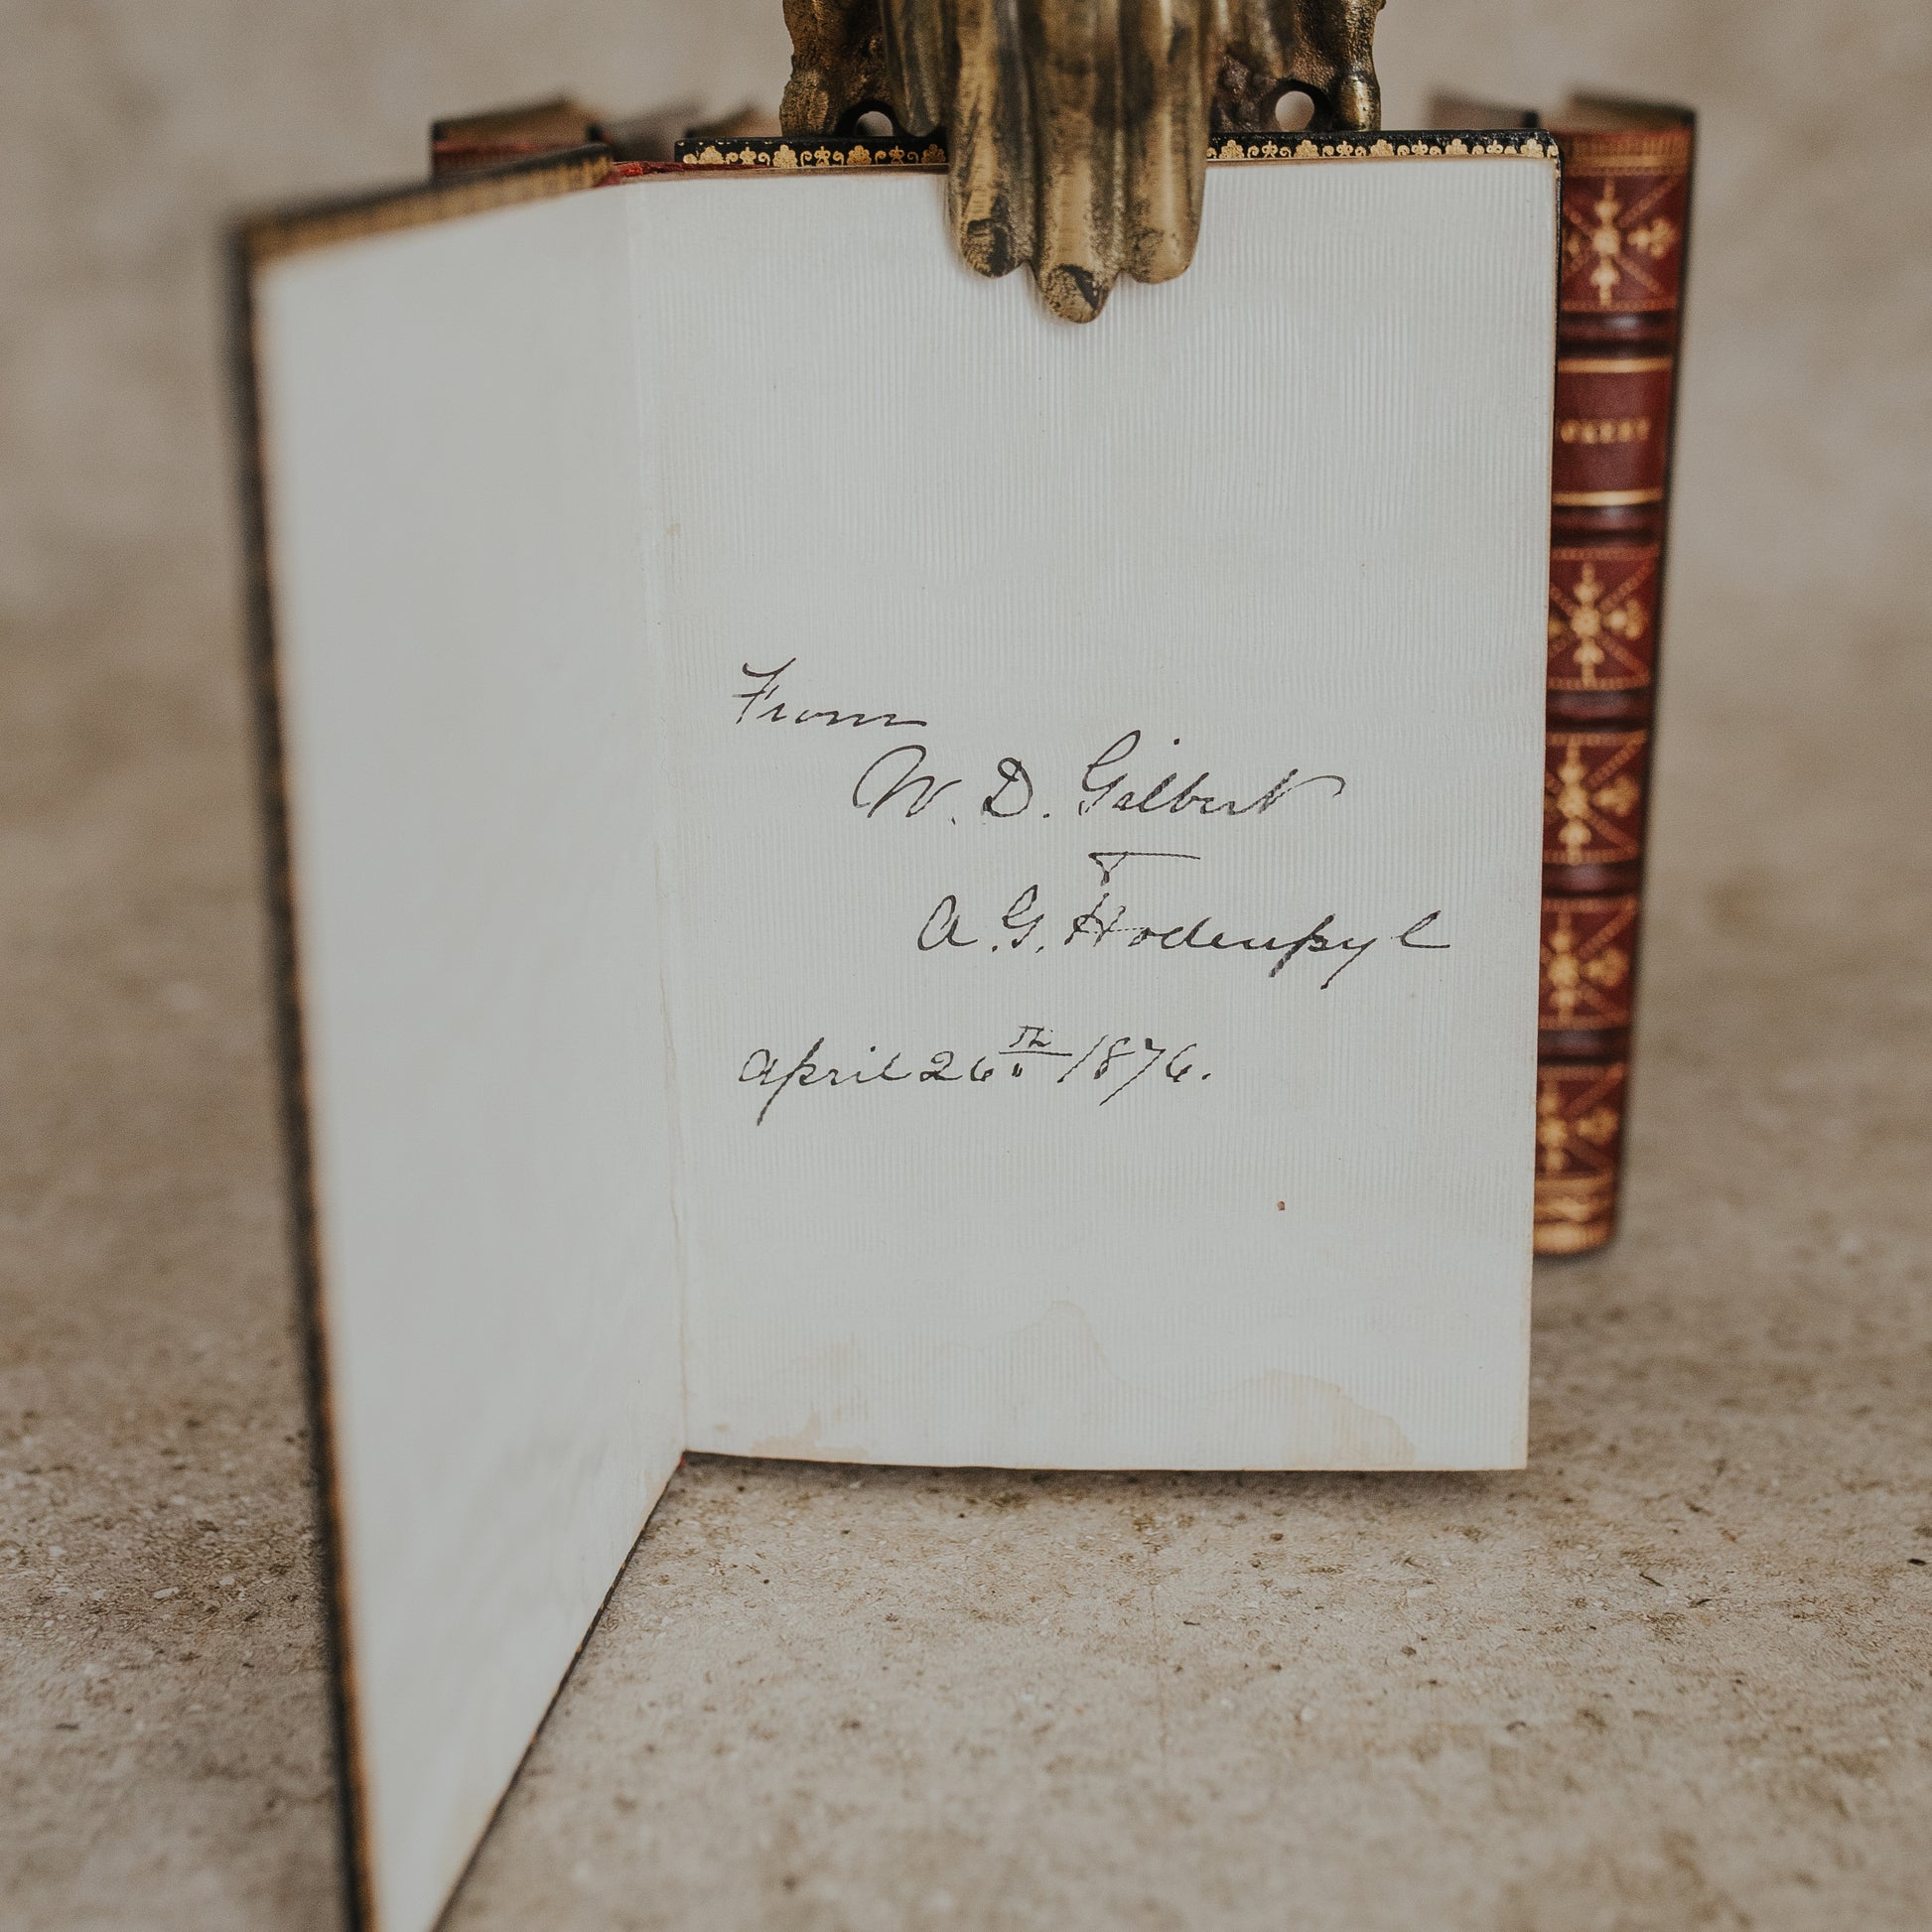 From
W. D. Gilbert
To
A. G. Hodenpyl
April 26th 1876.